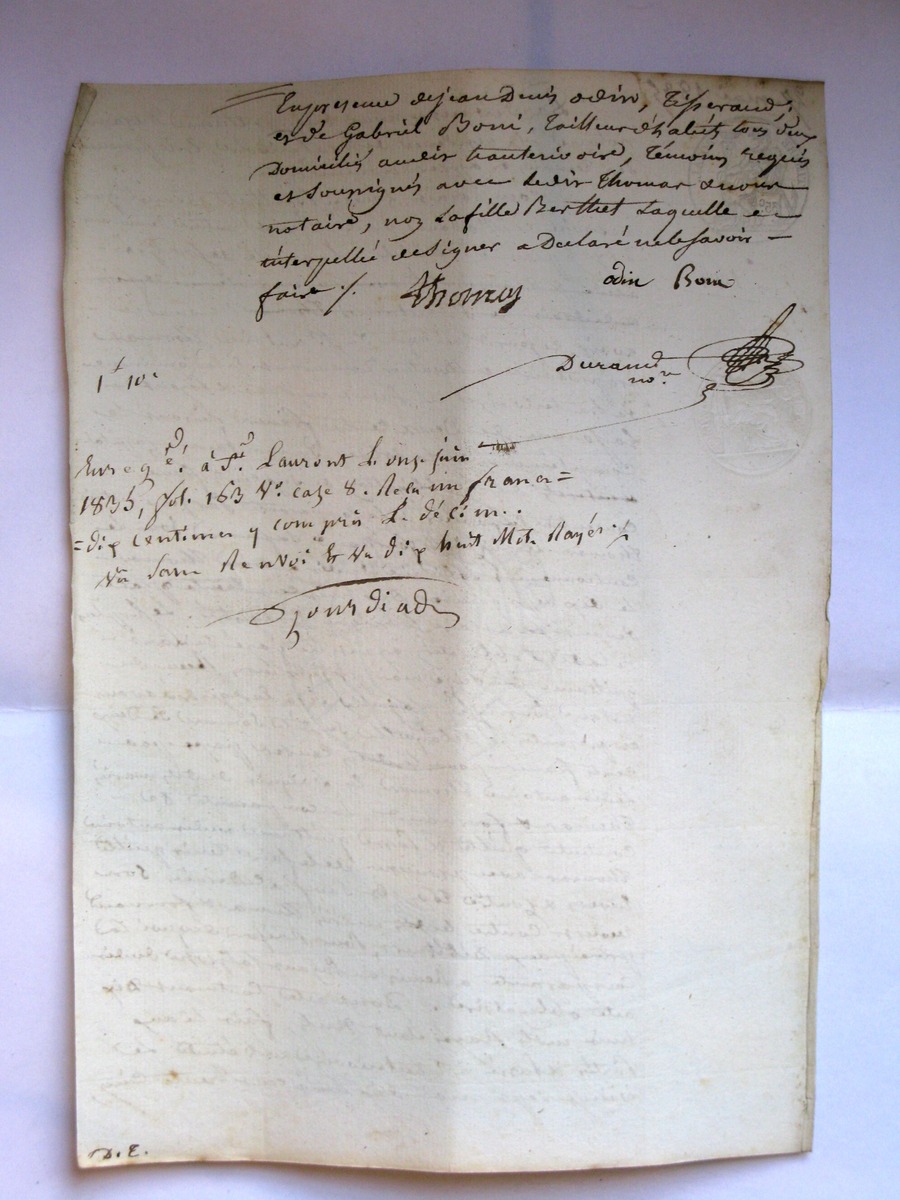 En presence de jean Denis odin, tisserand,
et de Gabriel Boni, tailleur d'habits tous deux
Domiciliés audit hauterivoire, témoins requis
et soussignés avec ledit Thomas & nous
notaire, non la fille Berthet laquelle
interpellée de signer a Declaré ne le savoir
faire ·/.
Thomas
odin Boni
Durand
nore
1f 10c
Enregé. à St. Laurent le onze juin
1835, fol. 163 Vo. case 8. Reçu un franc
dix centimes y compris le décime.
Vu sans Renvoi & Vu dix huit Mots Rayés ·/.
D. E.